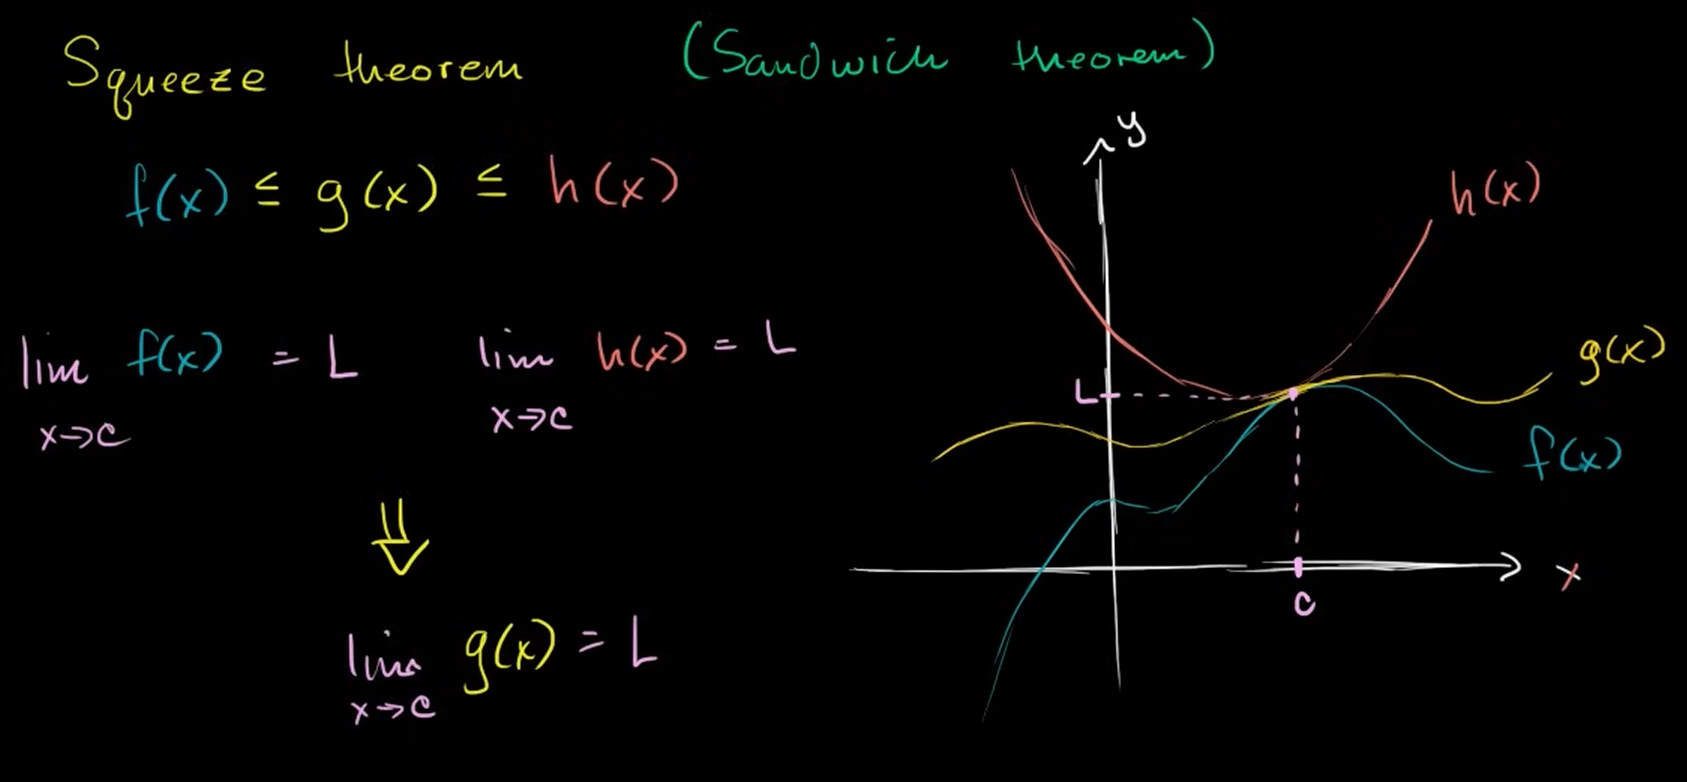 Squeeze theorem (Sandwich theorem)
f(x) ≤ g(x) ≤ h(x)
lim f(x) = L lim h(x) = L
x→c x→c
⇓
lim g(x) = L
x→c
y
h(x)
g(x)
L
f(x)
x
c